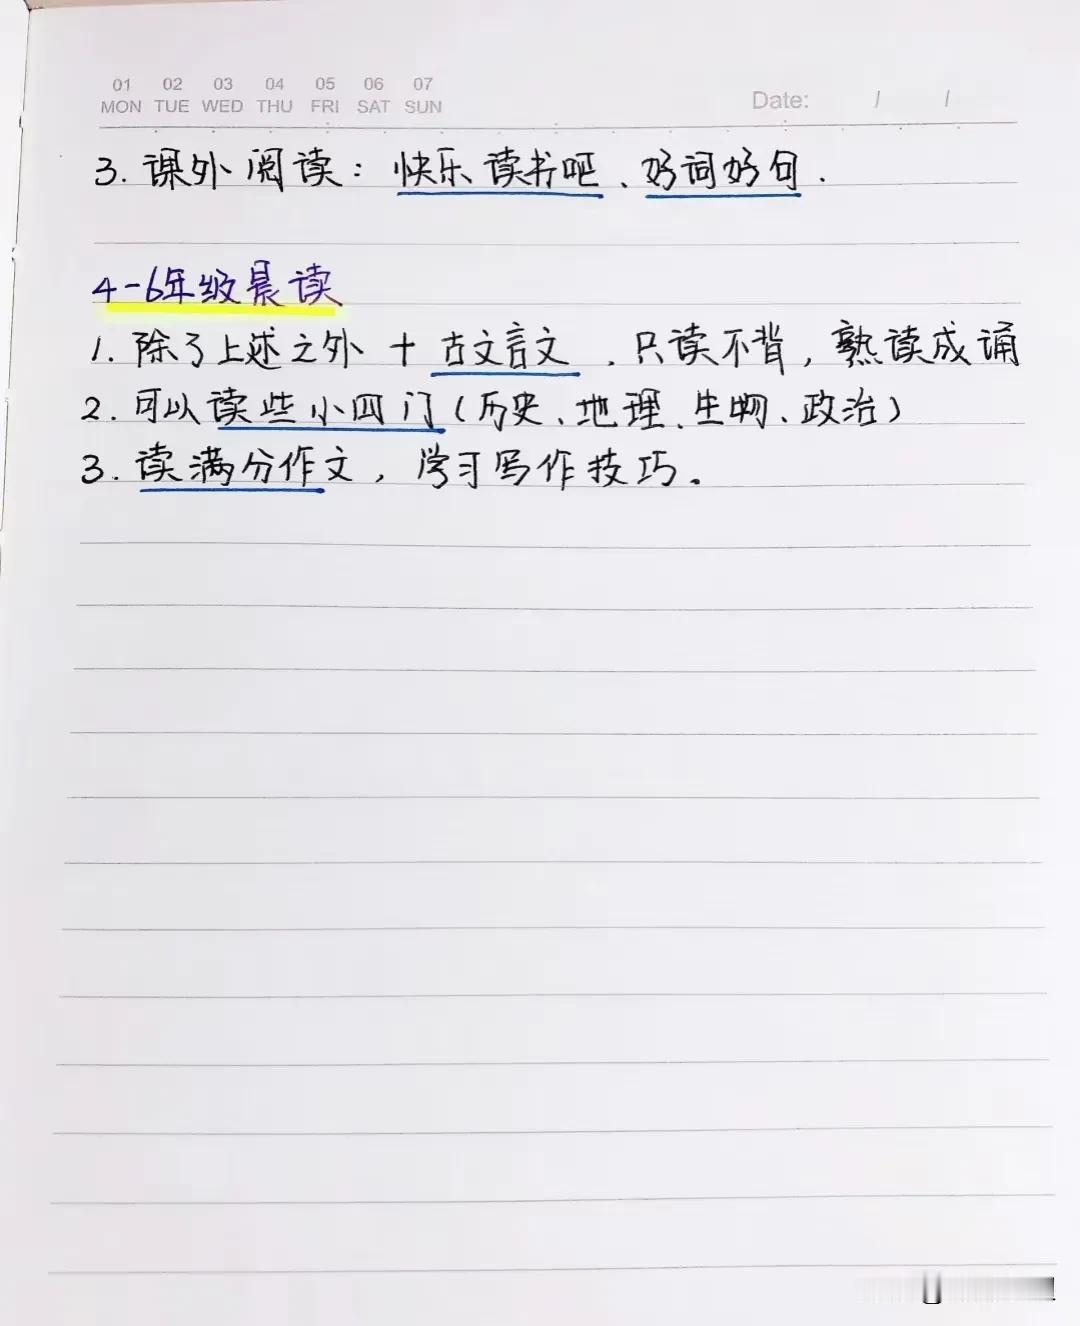 01 02 03 04 05 06 07
MON TUE WED THU FRI SAT SUN
Date: / /
3. 课外阅读：快乐读书吧、好词好句.
4-6年级晨读
1. 除了上述之外 + 古文言文，只读不背，熟读成诵
2. 可以读些小四门（历史、地理、生物、政治）
3. 读满分作文，学习写作技巧。